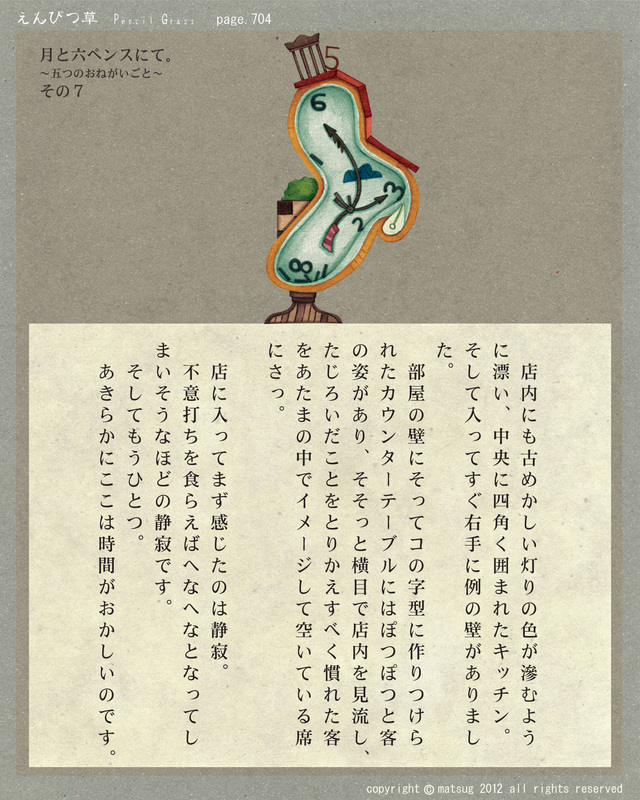 えんぴつ草 Pencil Grass page.704
月と六ペンスにて。
～五つのおねがいごと～
その７
5
6
1
3
2
8
店内にも古めかしい灯りの色が滲むよう
に漂い、中央に四角く囲まれたキッチン。
そして入ってすぐ右手に例の壁がありまし
た。
部屋の壁にそってコの字型に作りつけら
れたカウンターテーブルにはぽつぽつと客
の姿があり、そそっと横目で店内を見流し、
たじろいだことをとりかえすべく慣れた客
をあたまの中でイメージして空いている席
にさっ。
店に入ってまず感じたのは静寂。
不意打ちを食らえばへなへなとなってし
まいそうなほどの静寂です。
そしてもうひとつ。
あきらかにここは時間がおかしいのです。
copyright © matsug 2012 all rights reserved